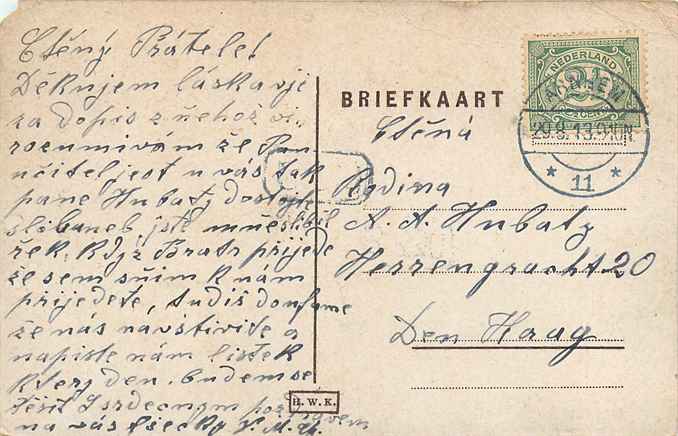 Ctěný Přátele!
Děkujem láskavě
za dopis z něhož vi,
rozumívám že Pan
učitel jest u vás tak
pane Hubatý dostojte
slibu neb jste mně slíbil
řek, když Bratr přijede
že sem s ním k nám
přijedete, tudiš doufáme
že nás navštívite a
napište nám lístek
který den. budem se
těšit S srdecným pozdravem
na vás všecky
BRIEFKAART
Ctěná
Rodina
A. A. Hubatý
Herrengracht 20
Den Haag
NEDERLAND
ARNHEM
29.8.13.9-10N
* 11 *
H.W.K.